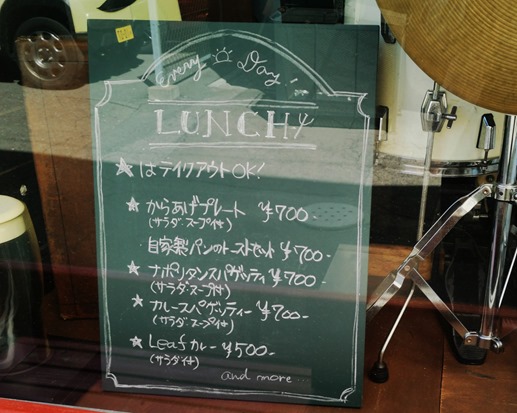 every Day!
LUNCH
★はテイクアウトOK!
★からあげプレート ¥700-
(サラダ・スープ付)
・自家製パンのトーストセット ¥700-
★ナポリタンスパゲッティ ¥700-
(サラダ・スープ付)
★カレースパゲッティー ¥700-
(サラダ・スープ付)
★Leafカレー ¥500-
(サラダ付)
and more...